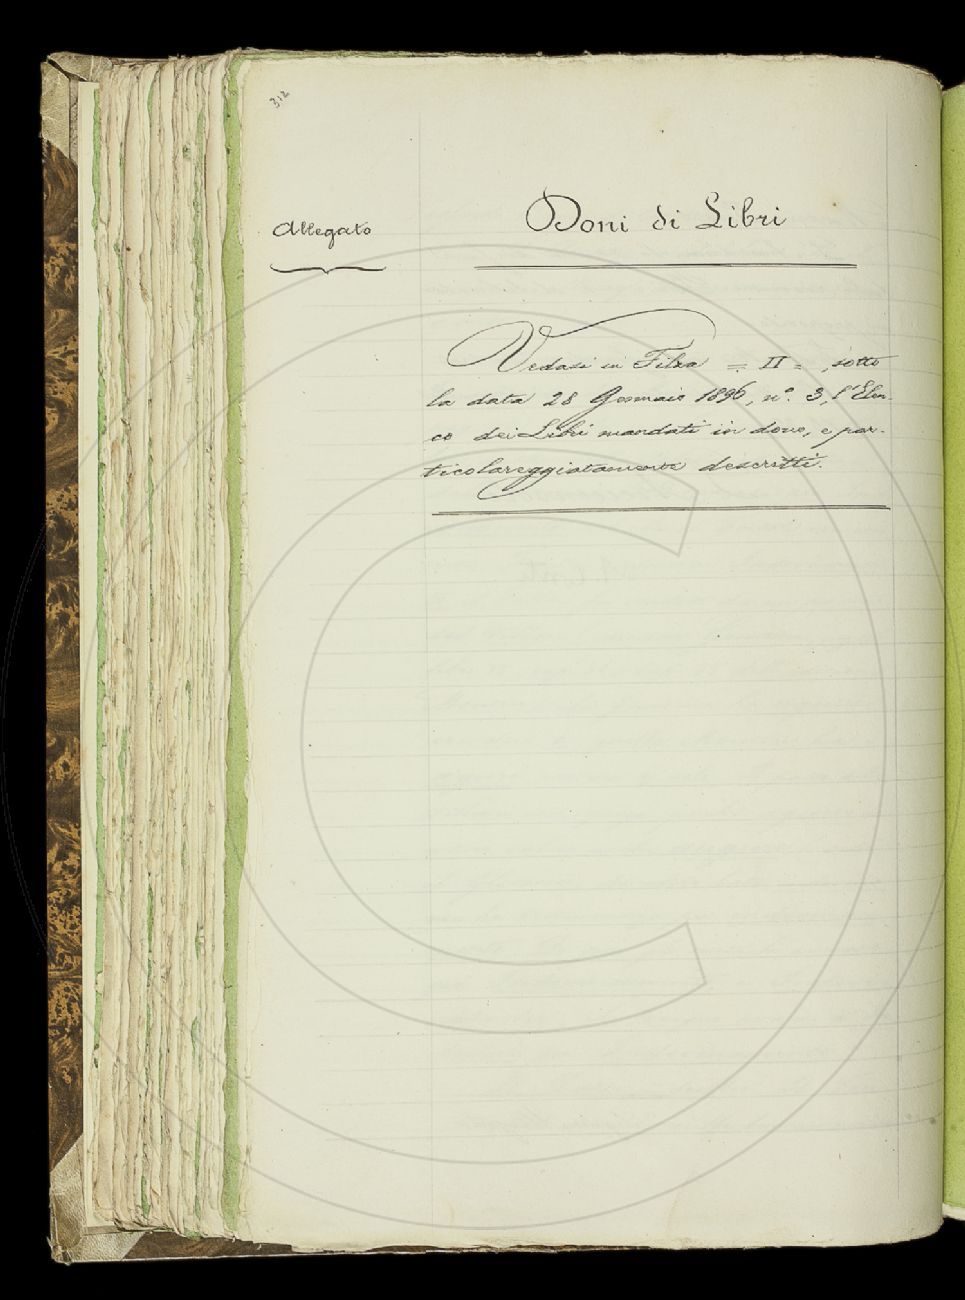 312
Allegato
Doni di Libri
Vedasi in Filza = II =, sotto
la data 28 Gennaio 1896, n.º 3, l'Elen-
co dei Libri mandati in dono, e par-
ticolareggiatamente descritti.